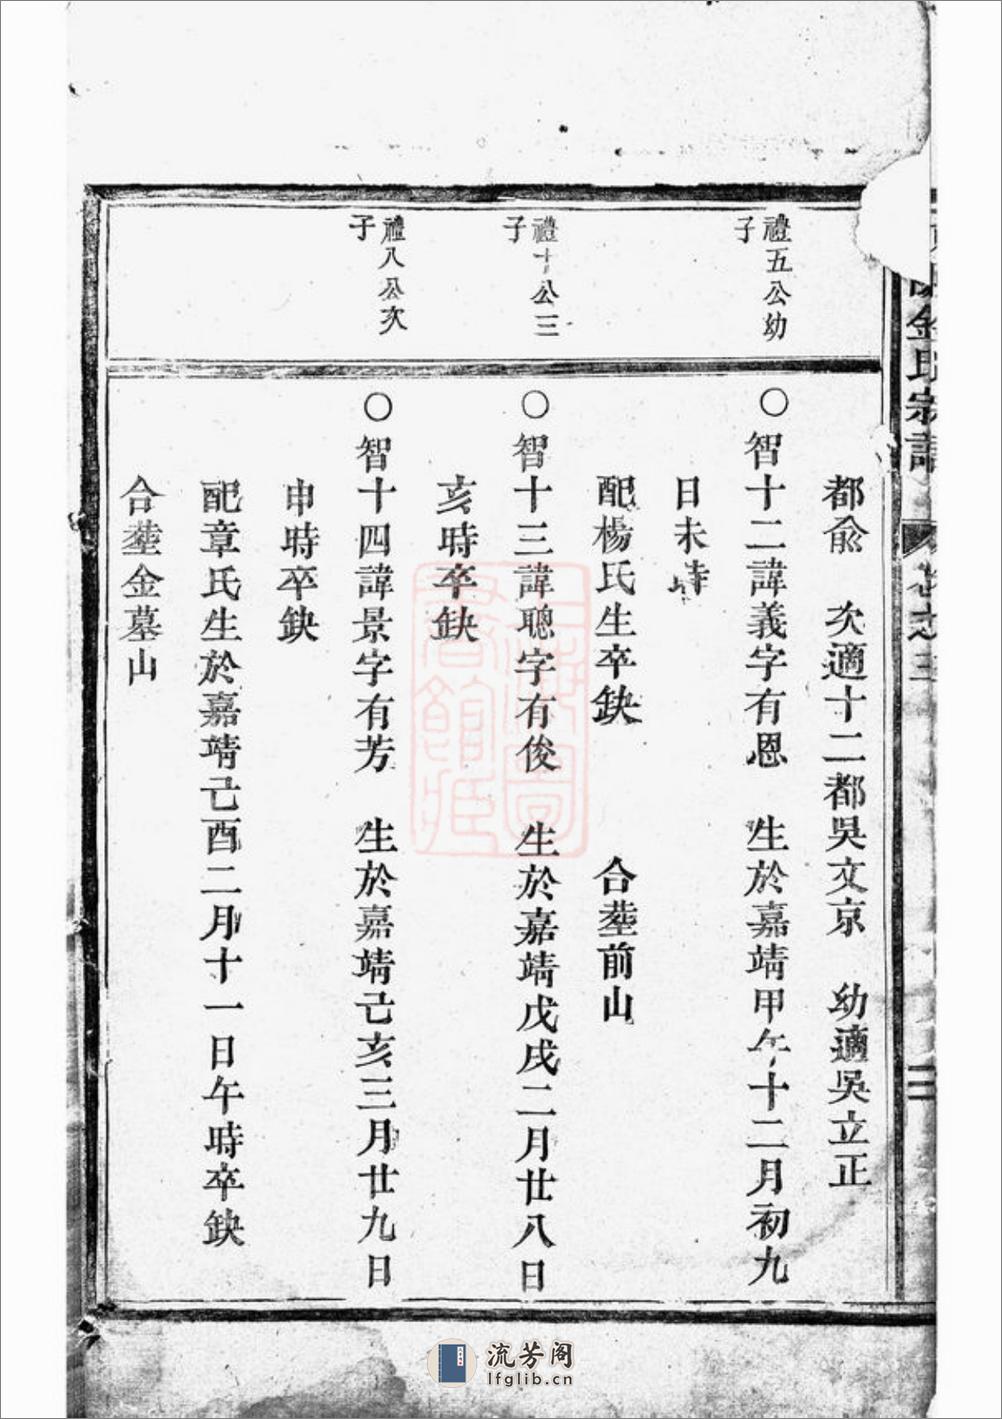 金氏宗譜
卷之三
三
都俞　次適十二都吳文京　幼適吳立正
禮五公幼
子
〇智十二諱義字有恩　生於嘉靖甲午十二月初九
日未時
配楊氏生卒缺　合塟前山
禮十公三
子
〇智十三諱聰字有俊　生於嘉靖戊戌二月廿八日
亥時卒缺
禮八公次
子
〇智十四諱景字有芳　生於嘉靖己亥三月廿九日
申時卒缺
配章氏生於嘉靖己酉二月十一日午時卒缺
合塟金墓山
上海圖
書館藏
流芳阁
lfglib.cn